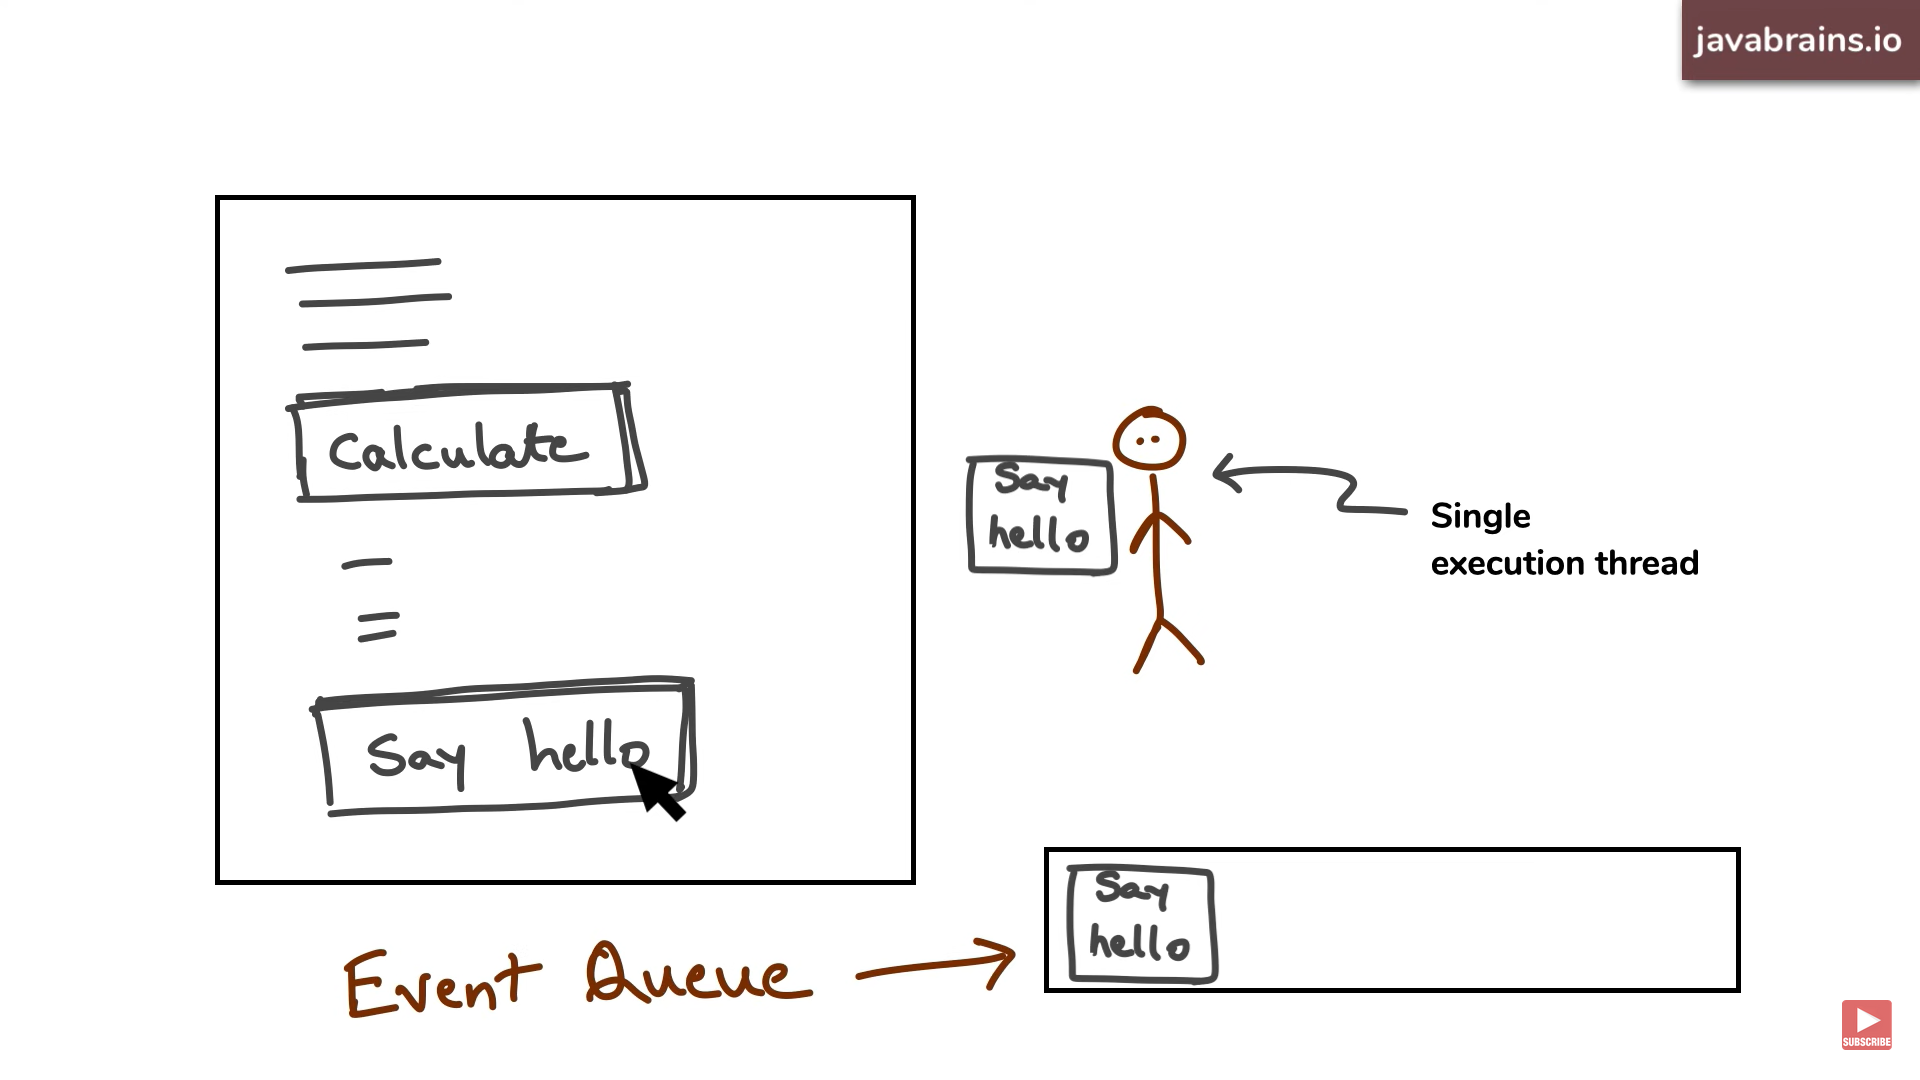 javabrains.io
Calculate
Say hello
Say
hello
Single
execution thread
Event Queue
Say
hello
SUBSCRIBE